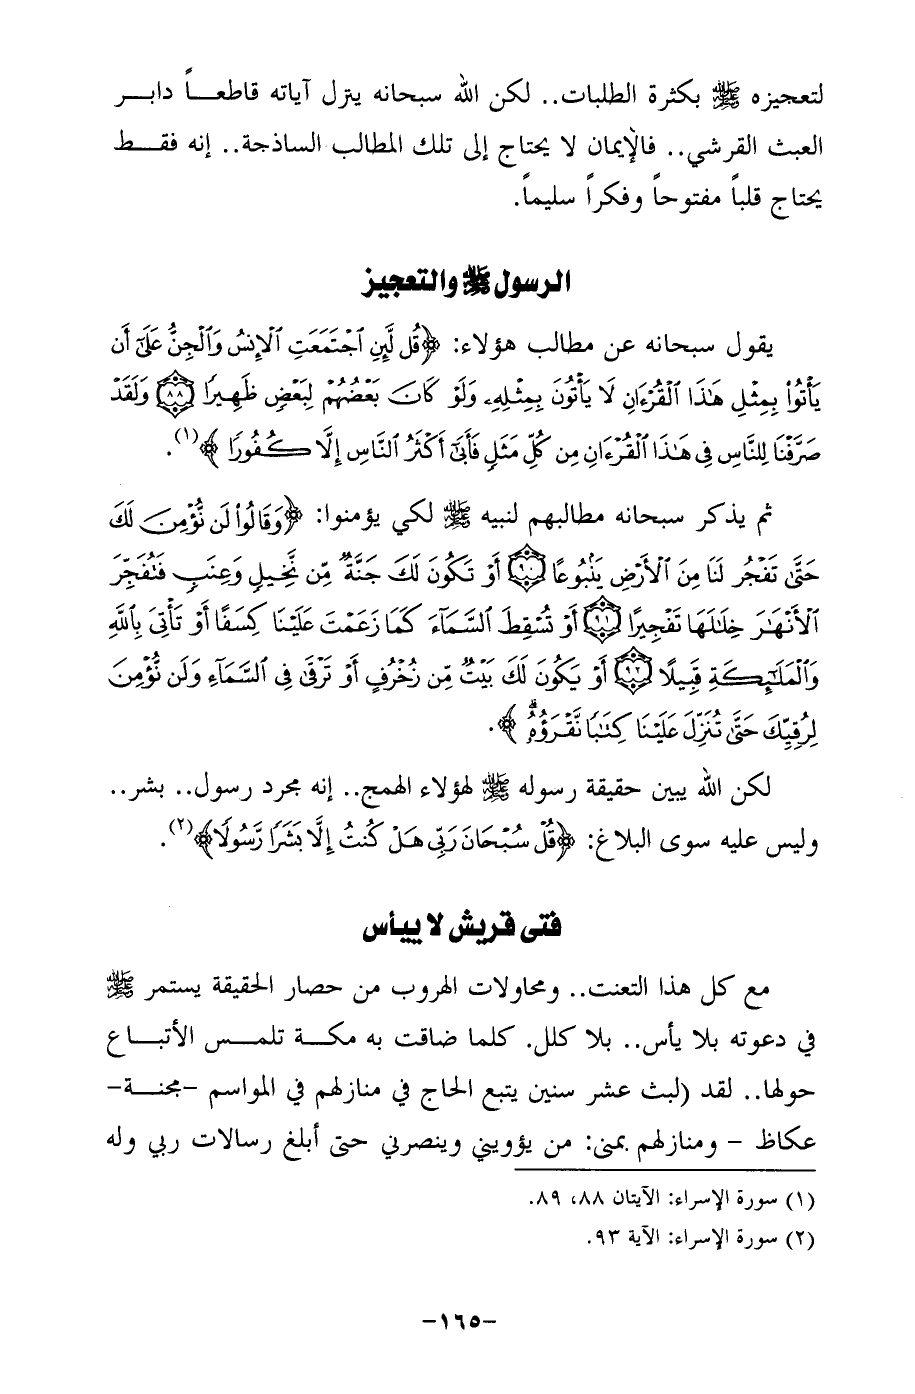 لتعجيزه ﷺ بكثرة الطلبات.. لكن الله سبحانه ينزل آياته قاطعاً دابر
العبث القرشي.. فالإيمان لا يحتاج إلى تلك المطالب الساذجة.. إنه فقط
يحتاج قلباً مفتوحاً وفكراً سليماً.
الرسول ﷺ والتعجيز
يقول سبحانه عن مطالب هؤلاء: ﴿قُل لَّئِنِ ٱجْتَمَعَتِ ٱلْإِنسُ وَٱلْجِنُّ عَلَىٰٓ أَن
يَأْتُوا۟ بِمِثْلِ هَٰذَا ٱلْقُرْءَانِ لَا يَأْتُونَ بِمِثْلِهِۦ وَلَوْ كَانَ بَعْضُهُمْ لِبَعْضٍ ظَهِيرًا ٨٨ وَلَقَدْ
صَرَّفْنَا لِلنَّاسِ فِى هَٰذَا ٱلْقُرْءَانِ مِن كُلِّ مَثَلٍ فَأَبَىٰٓ أَكْثَرُ ٱلنَّاسِ إِلَّا كُفُورًا﴾(١).
ثم يذكر سبحانه مطالبهم لنبيه ﷺ لكي يؤمنوا: ﴿وَقَالُوا۟ لَن نُّؤْمِنَ لَكَ
حَتَّىٰ تَفْجُرَ لَنَا مِنَ ٱلْأَرْضِ يَنۢبُوعًا ٩٠ أَوْ تَكُونَ لَكَ جَنَّةٌ مِّن نَّخِيلٍ وَعِنَبٍ فَتُفَجِّرَ
ٱلْأَنْهَٰرَ خِلَٰلَهَا تَفْجِيرًا ٩١ أَوْ تُسْقِطَ ٱلسَّمَآءَ كَمَا زَعَمْتَ عَلَيْنَا كِسَفًا أَوْ تَأْتِىَ بِٱللَّهِ
وَٱلْمَلَٰٓئِكَةِ قَبِيلًا ٩٢ أَوْ يَكُونَ لَكَ بَيْتٌ مِّن زُخْرُفٍ أَوْ تَرْقَىٰ فِى ٱلسَّمَآءِ وَلَن نُّؤْمِنَ
لِرُقِيِّكَ حَتَّىٰ تُنَزِّلَ عَلَيْنَا كِتَٰبًا نَّقْرَؤُهُۥ﴾.
لكن الله يبين حقيقة رسوله ﷺ لهؤلاء الهمج.. إنه مجرد رسول.. بشر..
وليس عليه سوى البلاغ: ﴿قُلْ سُبْحَانَ رَبِّى هَلْ كُنتُ إِلَّا بَشَرًا رَّسُولًا﴾(٢).
فتى قريش لا ييأس
مع كل هذا التعنت.. ومحاولات الهروب من حصار الحقيقة يستمر ﷺ
في دعوته بلا يأس.. بلا كلل. كلما ضاقت به مكة تلمس الأتباع
حولها.. لقد (لبث عشر سنين يتبع الحاج في منازلهم في المواسم -مجنة-
عكاظ - ومنازلهم بمنى: من يؤويني وينصرني حتى أبلغ رسالات ربي وله
(١) سورة الإسراء: الآيتان ٨٨، ٨٩.
(٢) سورة الإسراء: الآية ٩٣.
-١٦٥-